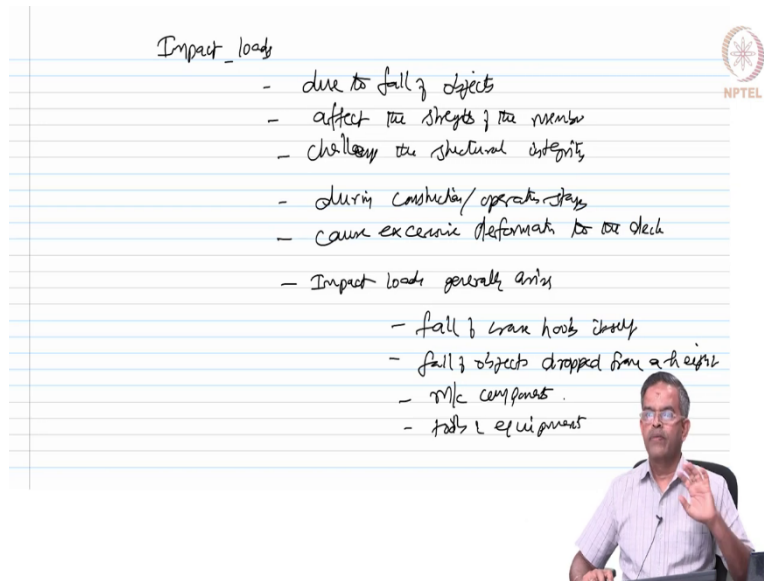 Impact_loads
- due to fall of objects
- affect the strength of the member
- challenge the structural integrity
- during construction/operation stages
- cause excessive deformation to the deck
- Impact loads generally arise
- fall of crane hooks itself
- fall of objects dropped from a height
- m/c components.
- tools & equipment
NPTEL